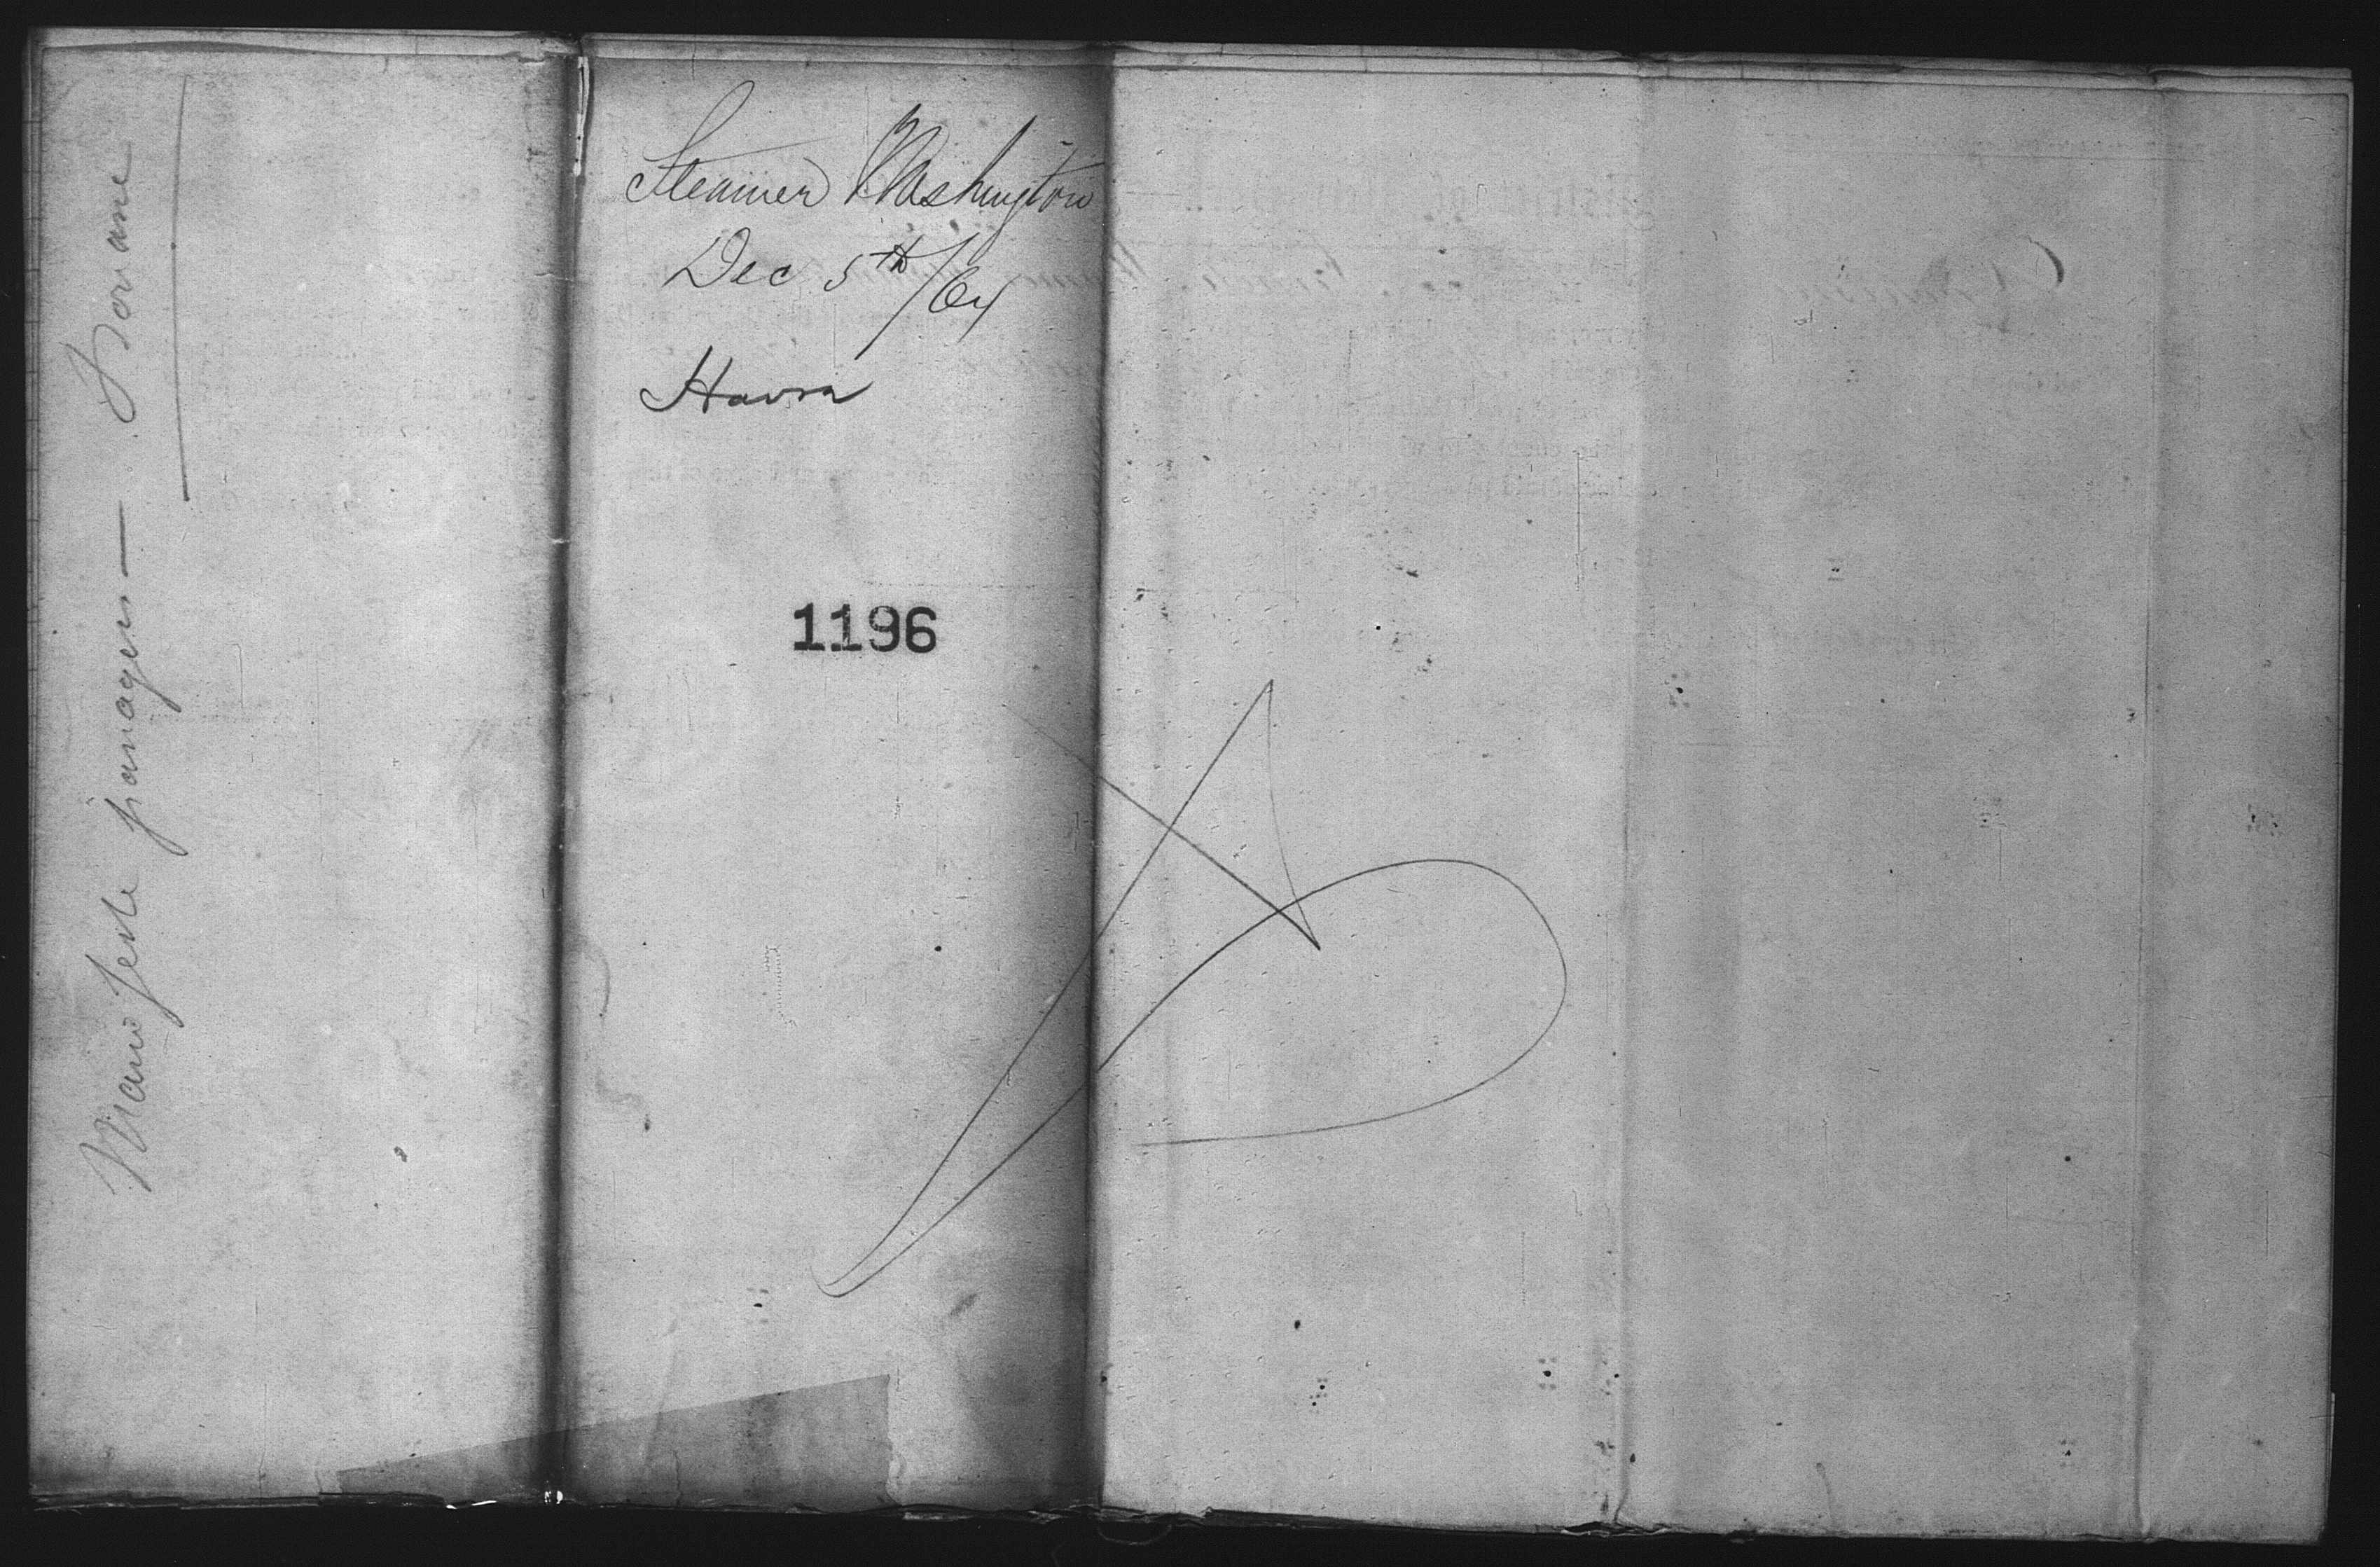 Manifeste passagers —
Steamer Washington
Dec 5th/64
Havre
1196